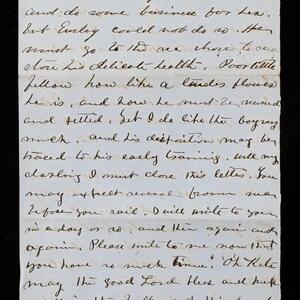 and do some business for her.
But Ensley could not do so. He
must go to the sea shore to
store his delicate health. Poor little
fellow how like a tender flower
he is, and how he must be nursed
and petted. Yet I do like the boy very
much, and his disposition may be
traced to his early training. Well my
darling I must close this letter. You
may expect several from me
before you sail. I will write to you
in a day or so and then again and
again. Please write to me now that
you have so much time. Oh Kate
may the good Lord bless and